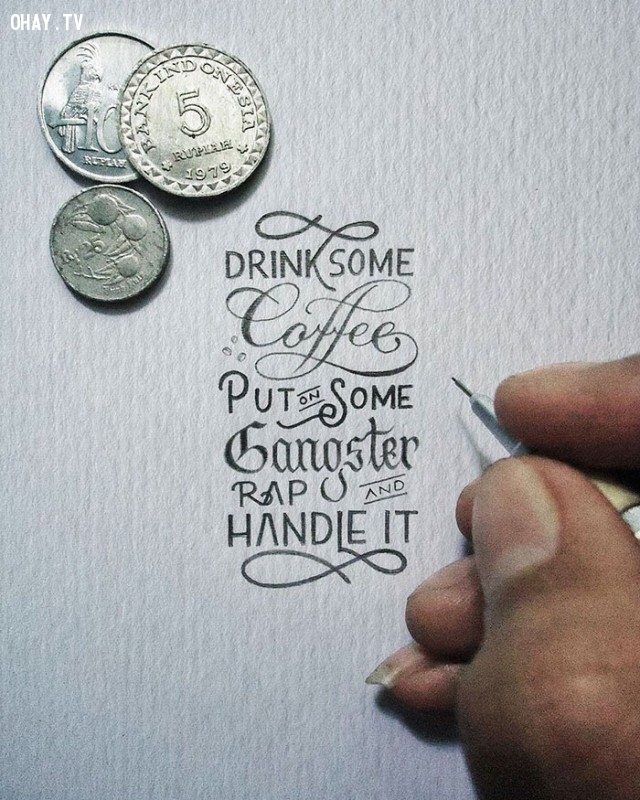 OHAY.TV
BANK INDONESIA
5
RUPIAH
1979
RUPIAH
DRINK SOME
Coffee
PUT ON SOME
Gangster
RAP AND
HANDLE IT